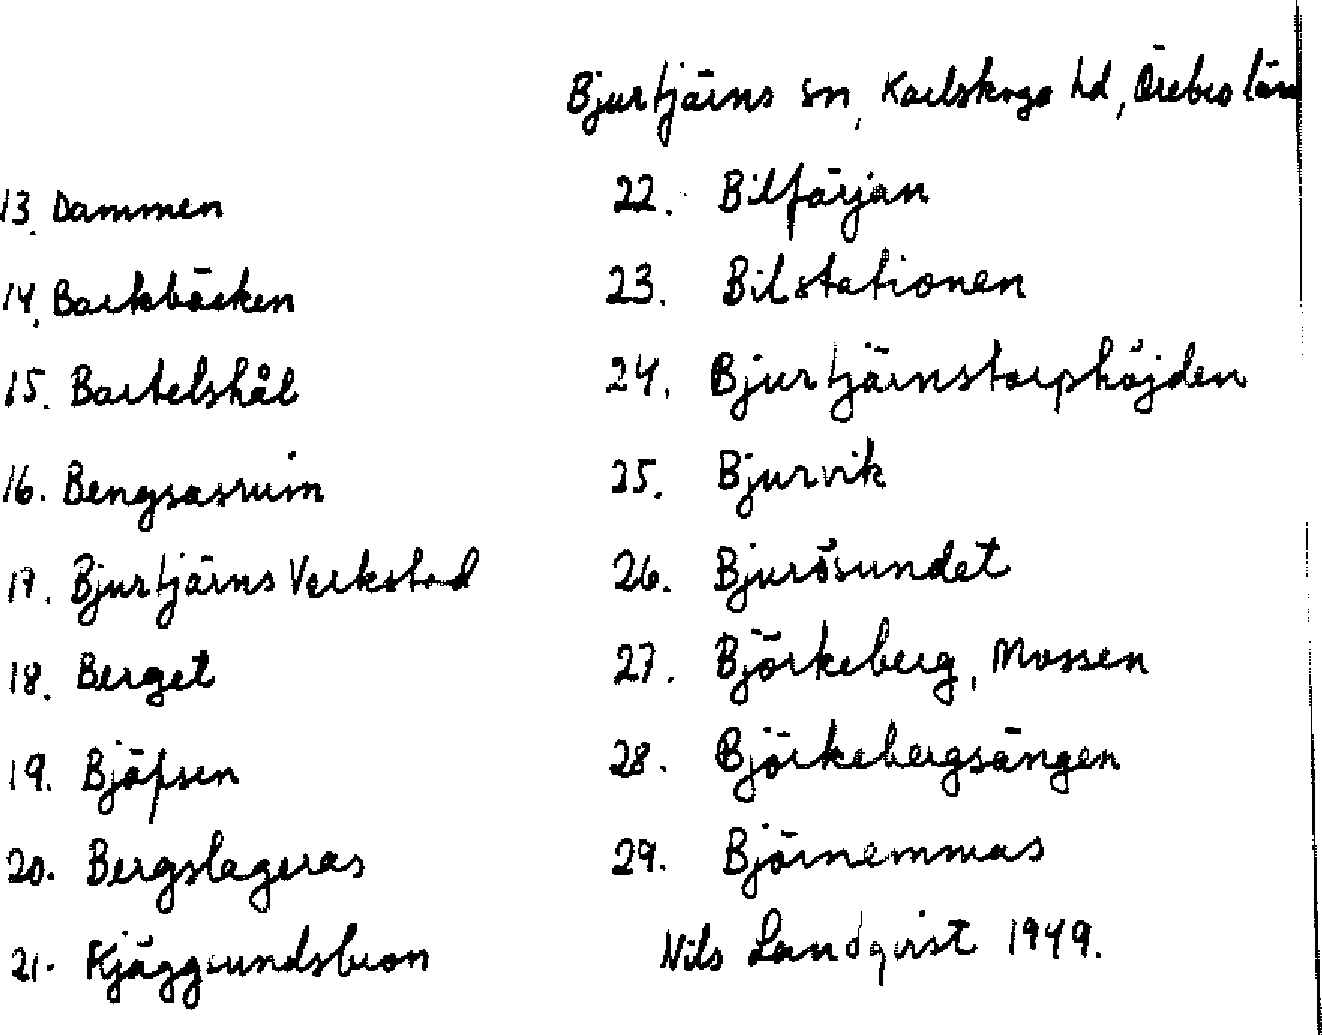 Bjurtjärns sn, Karlskoga hd, Örebro län
13. Dammen
14. Barkbäcken
15. Bartelshål
16. Bengsasruin
17. Bjurtjärns Verkstad
18. Berget
19. Bjäfsen
20. Bergslageras
21. Kjäggsundsbron
22. Bilfärjan
23. Bilstationen
24. Bjurtjärnstorphöjden
25. Bjurvik
26. Bjurösundet
27. Björkeberg, Mossen
28. Björkebergsängen
29. Björnemmas
Nils Landqvist 1949.